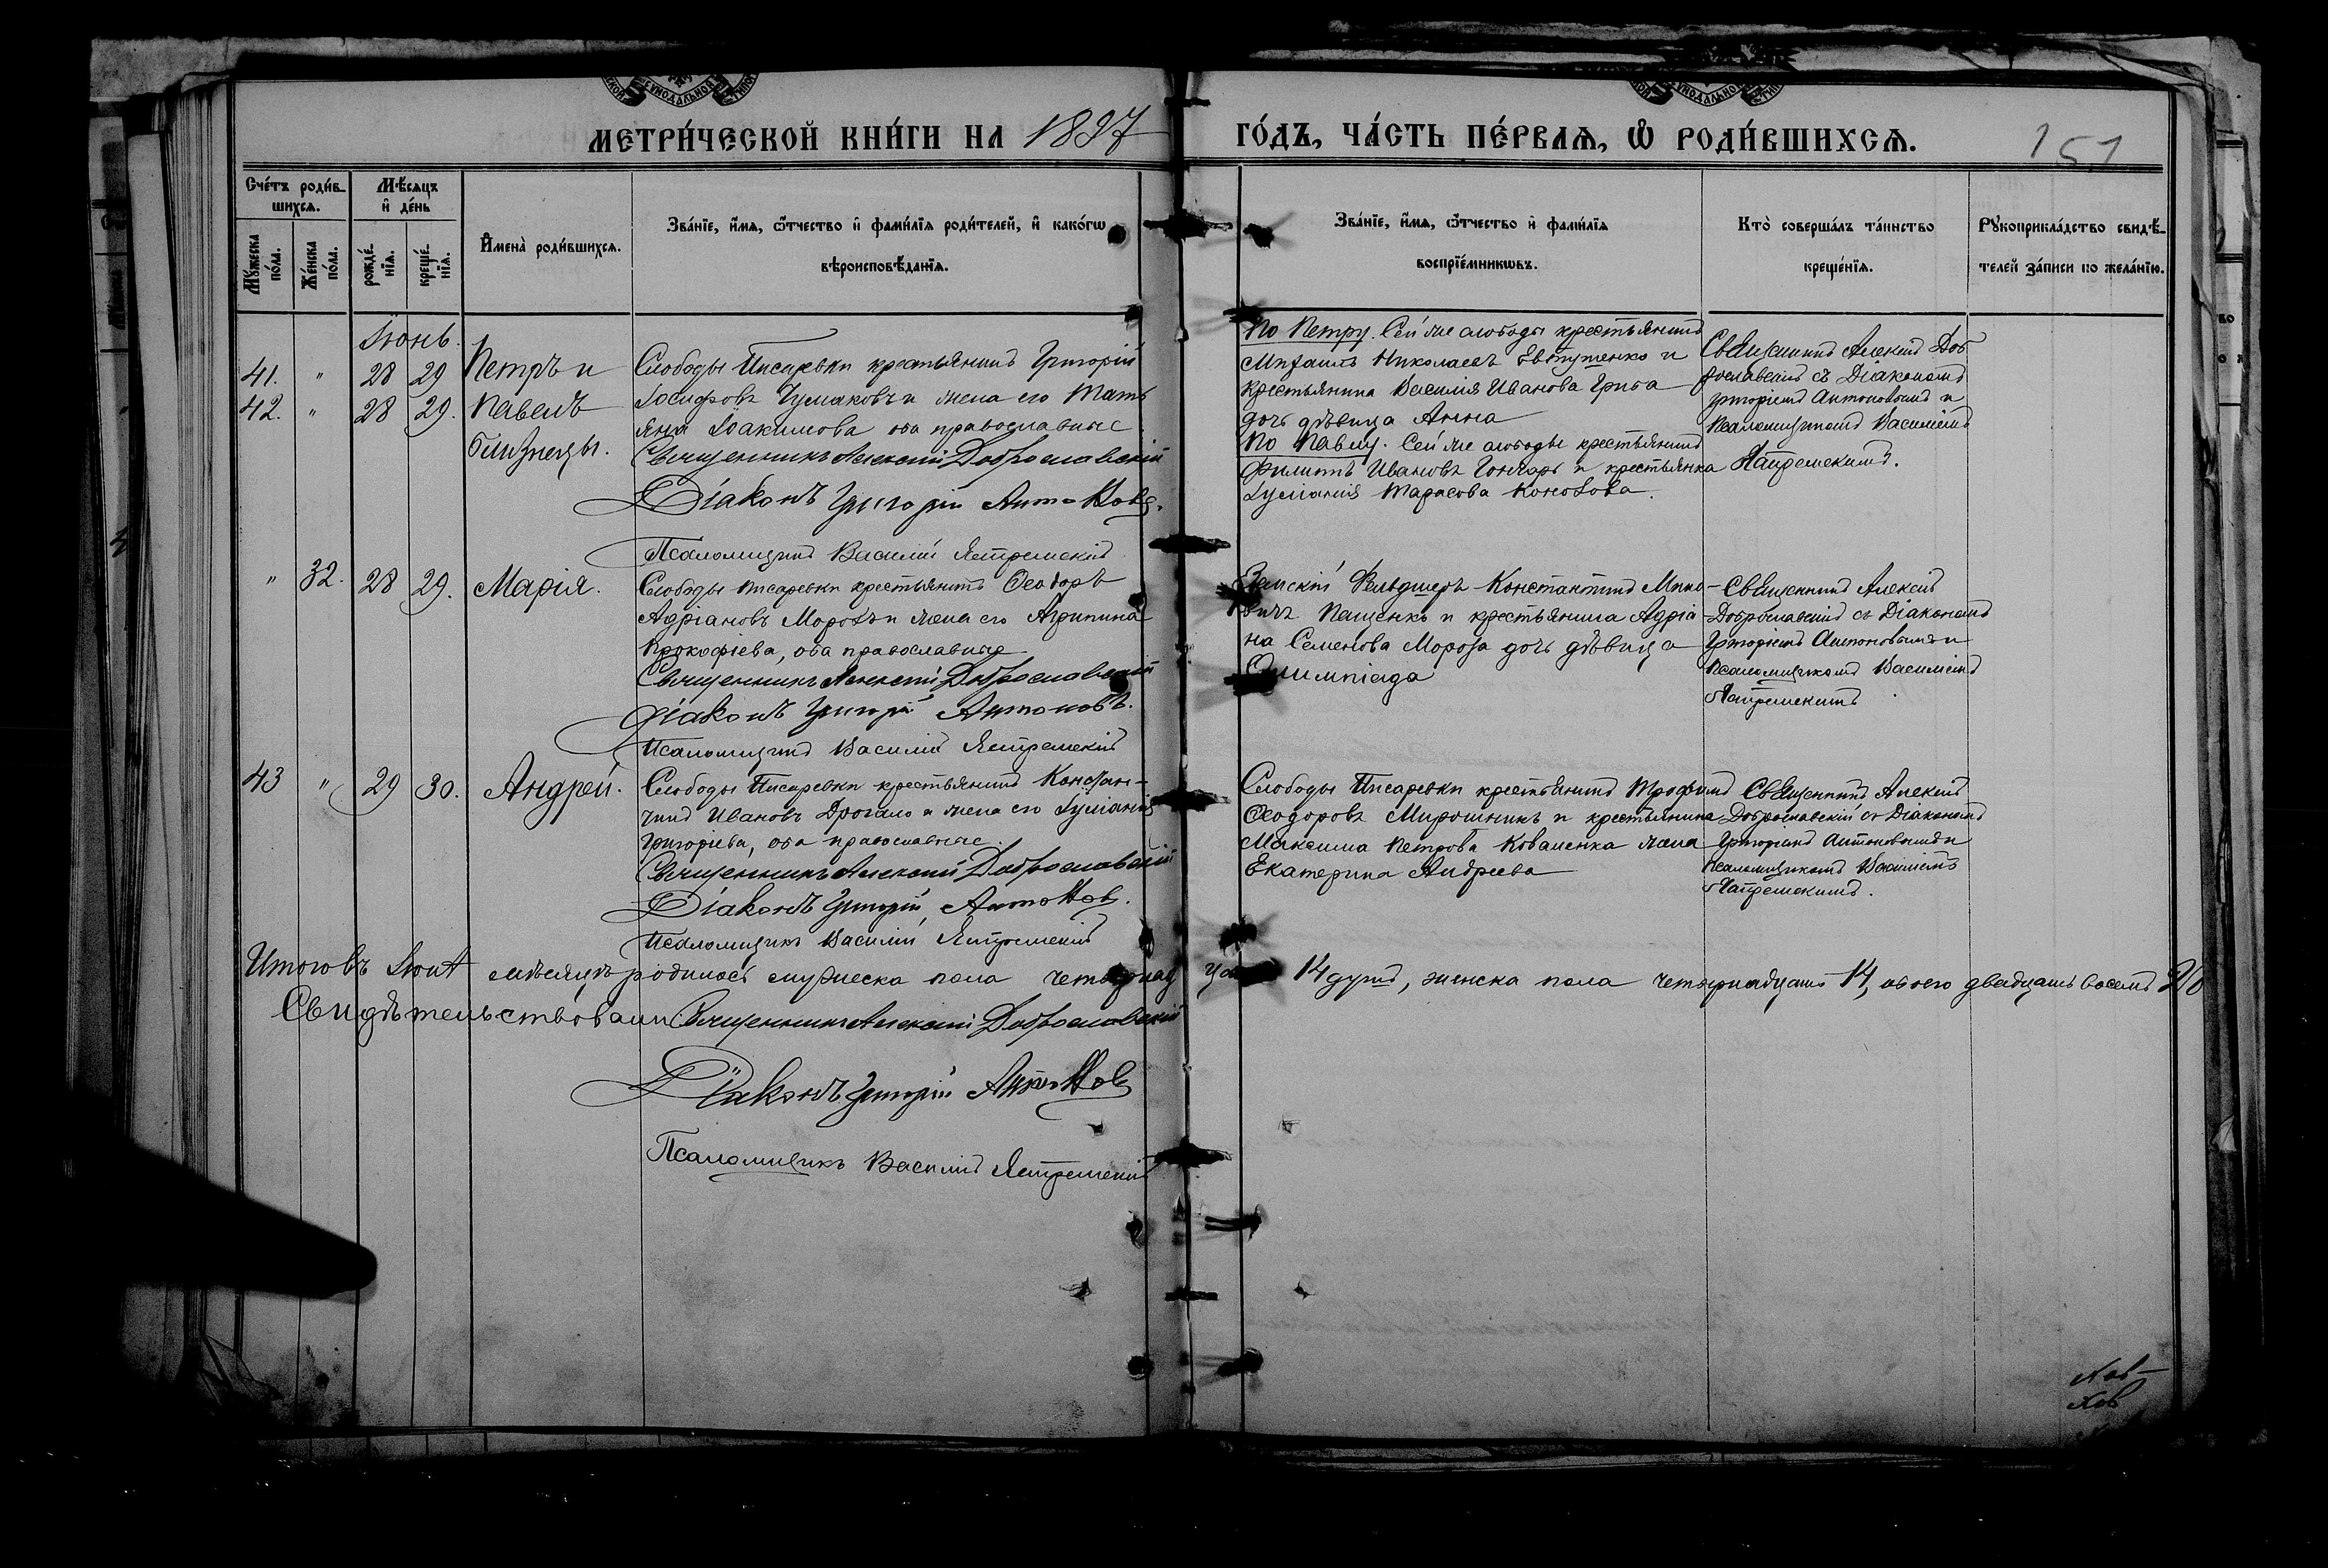 МЕТРИ́ЧЕСКОЙ КНИ́ГИ НА 1897
ГО́ДЪ, ЧА́СТЬ ПЕ́РВАѦ, Ѡ҆ РОДИ́ВШИХСѦ.
151
Сче́тъ роди́в-
шихсѧ.
Мѣ́сѧцъ
и҆ де́нь
Мꙋ́жеска
по́ла.
Же́нска
по́ла.
рожде́-
нїѧ.
креще́-
нїѧ.
И҆мена̀ роди́вшихсѧ.
Зва́нїе, и҆́мѧ, ѻ҆́тчество и҆ фами́лїѧ роди́телей, и҆ како́гѡ
вѣроисповѣ́данїѧ.
Зва́нїе, и҆́мѧ, ѻ҆́тчество и҆ фами́лїѧ
воспрїе́мникѡвъ.
Кто̀ соверша́лъ та́инство
креще́нїѧ.
Рꙋкоприкла́дство свидѣ́-
телей за́писи по жела́нїю.
Іюнь.
41. " 28 29 Петръ и
42. " 28 29. Павелъ
близнецы.
Слободы Писаревки крестьянинъ Григорій
Іосифовъ Чумаковъ и жена его Тать
яна Іоакимова оба православные
Священникъ Алексій Доброславскій
Діаконъ Григорій Антоновъ.
Псаломщикъ Василій Ястремскій
По Петру. Сей же слободы крестьянинъ
Михаилъ Николаевъ Евтушенко и
крестьянина Василія Иванова Грига
дочь дѣвица Анна
По Павлу. Сей же слободы крестьянинъ
Филиппъ Ивановъ Гончаръ и крестьянка
Іуліанія Тарасова
Священникъ Алексій Доб
рославскій съ Діакономъ
Григоріемъ Антоновымъ и
Псаломщикомъ Василіемъ
Ястремскимъ.
" 32. 28 29. Марія.
Слободы Писаревки крестьянинъ Ѳеодоръ
Адріановъ Морозъ и жена его Агрипина
Прокофіева, оба православные
Священникъ Алексій Доброславскій
Діаконъ Григорій Антоновъ.
Псаломщикъ Василій Ястремскій
Земскій Фельдшеръ Константинъ
Пащенко и крестьянина Адріа
на Семенова Мороза дочь дѣвица
Олимпіада
Священникъ Алексій
Доброславскій съ Діакономъ
Григоріемъ Антоновымъ и
Псаломщикомъ Василіемъ
Ястремскимъ
43 " 29 30. Андрей.
Слободы Писаревки крестьянинъ Констан-
тинъ Ивановъ Дрогало и жена его Іуліанія
Григоріева, оба православные.
Священникъ Алексій Доброславскій
Діаконъ Григорій Антонов.
Псаломщикъ Василій Ястремскій
Слободы Писаревки крестьянинъ Трофимъ
Ѳеодоровъ Мирошникъ и крестьянина
Максима Петрова Коваленка жена
Екатерина Андреева
Священникъ Алексій
Доброславскій съ Діакономъ
Григоріемъ Антоновымъ и
Псаломщикомъ Василіемъ
Ястремскимъ.
Итого въ Іюнѣ мѣсяцѣ родилось мужеска пола четырнад цать 14 душъ, женска пола четырнадцать 14, обоего двадцать восемь 28
Свидѣтельствовали Священникъ Алексій Доброславскій
Діаконъ Григорій Антонов
Псаломщикъ Василій Ястремскій